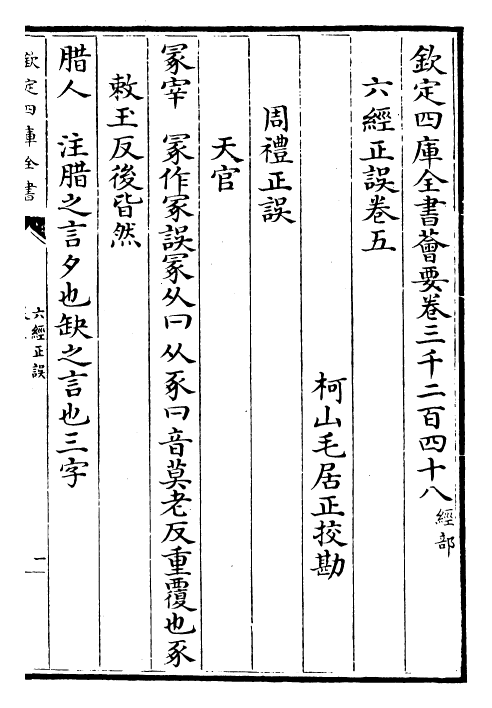 欽定四庫全書薈要卷三千二百四十八經部
六經正誤卷五
柯山毛居正挍勘
周禮正誤
天官
冢宰 冡作冢誤冡从曰从豕曰音莫老反重覆也豕
敕玉反後皆然
腊人 注腊之言夕也缺之言也三字
欽定四庫全書
六經正誤
一